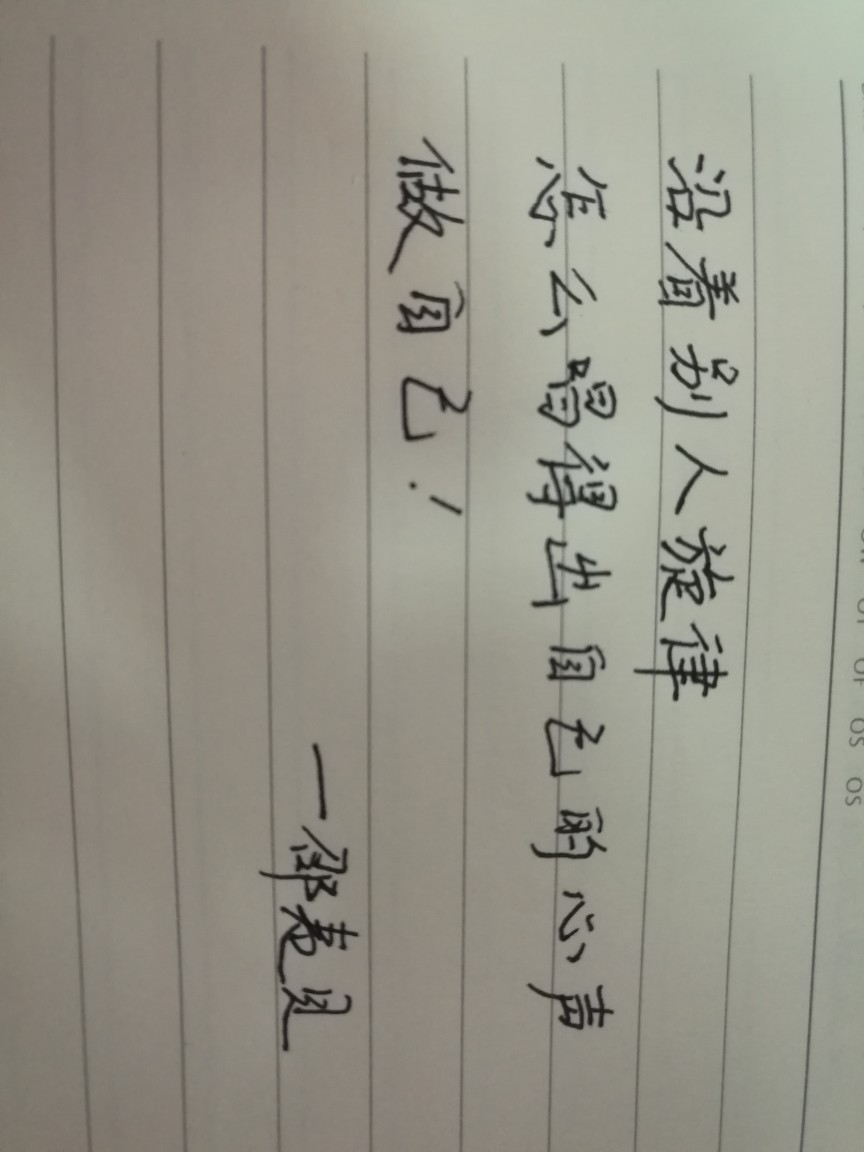 沿着别人旋律
怎么唱得出自己的心声
做自己!